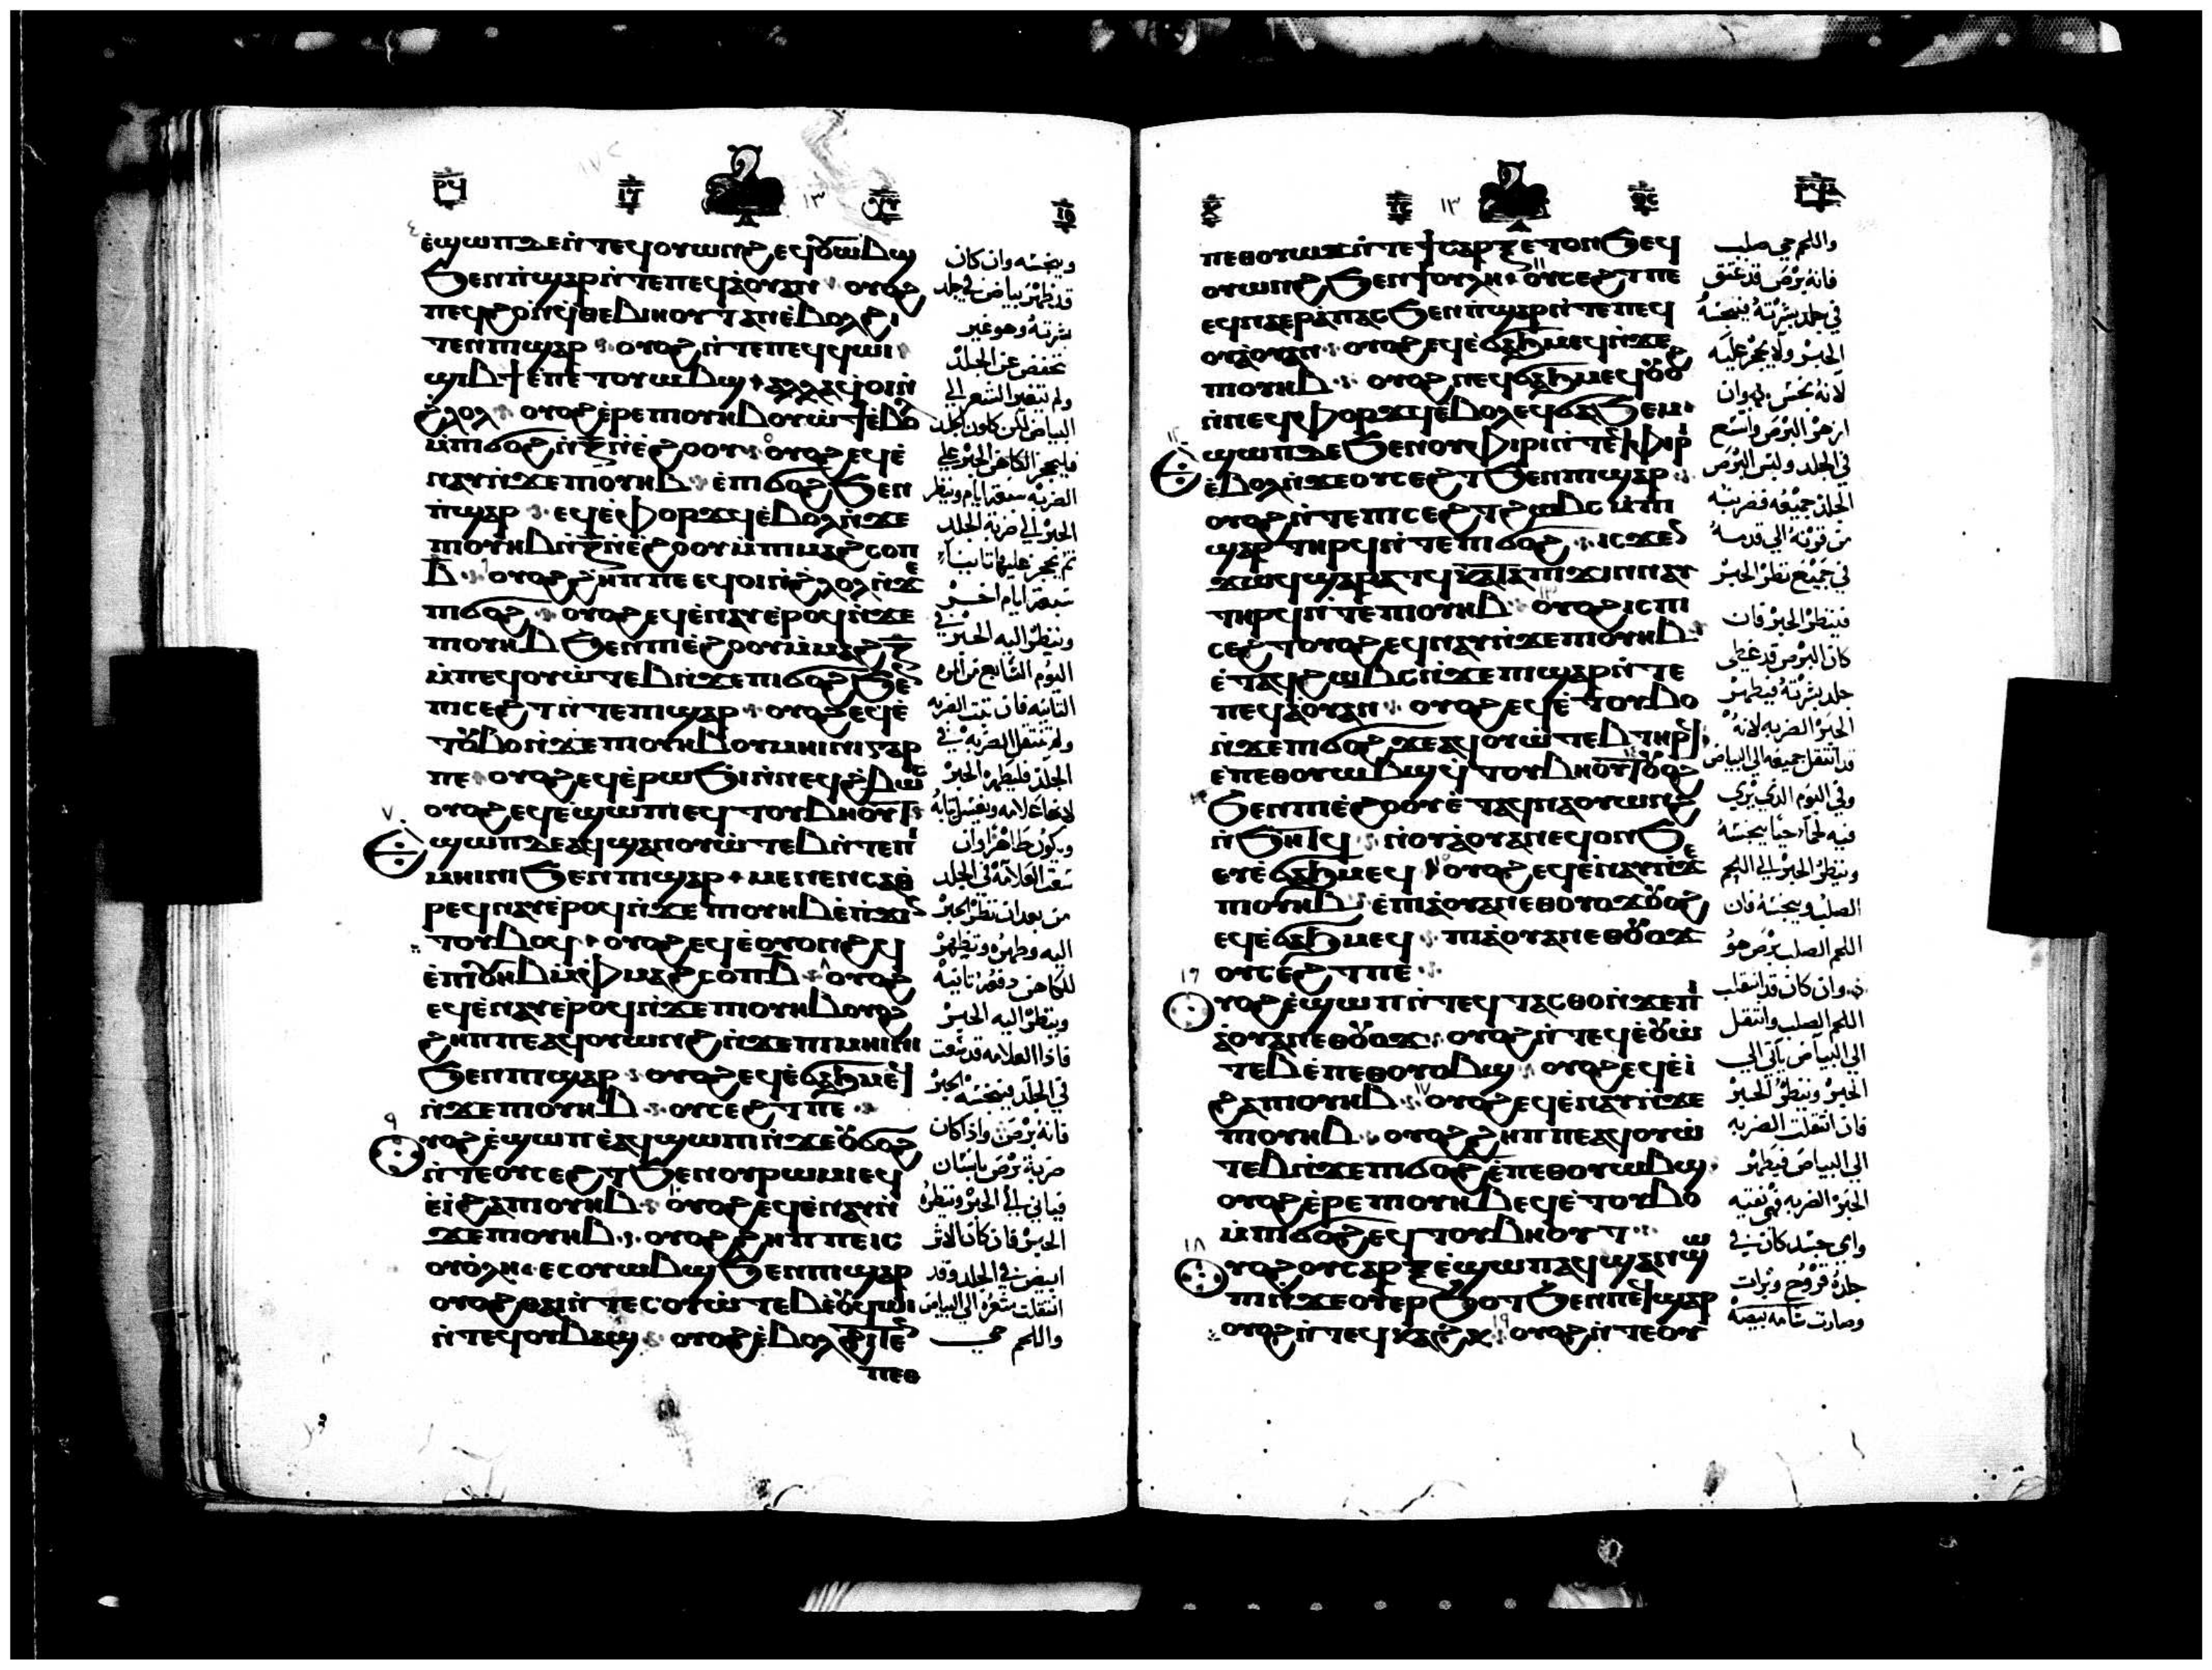 ⲉϣⲱⲡ ⲇⲉ ⲛ̀ⲧⲉϥⲟⲩⲱⲛϩ ⲉϥⲟⲩⲱⲃϣ
ϧⲉⲛ ⲡ̀ϣⲁⲣ ⲛ̀ⲧⲉ ⲡⲉϥⲁ̀ⲟⲩⲁⲛ ⲟⲩⲟϩ
ⲧⲉⲛ ⲡⲓϣⲁⲣ ⲟⲩⲟϩ ⲛ̀ⲧⲉ ⲡⲉϥϥⲱⲓ
ϣⲓⲃϯ ⲉⲡⲉⲧⲟⲩⲱⲃϣ ⲁⲗⲗⲁ ϥⲟⲓ ⲛ̀
ⲭ̀ⲗⲟⲗ ⲟⲩⲟϩ ⲉ̀ⲣⲉ ⲡⲓⲟⲩⲏⲃ ⲟⲩⲱϯ ⲉ̀ⲃⲟ
ⲙ̀ⲡⲓϭⲟϩ ⲛ̀ⲍ̅ ⲛ̀ⲉ̀ϩⲟⲟⲩ ⲟⲩⲟϩ ⲉϥⲉ̀
ⲛⲁⲩ ⲛ̀ϫⲉ ⲡⲓⲟⲩⲏⲃ ⲉ̀ⲡⲓϭⲟϩ ϧⲉⲛ
ⲡ̀ϣⲁⲣ ⲉϥⲉ̀ⲫⲟⲣϫϥ ⲉ̀ⲃⲟⲗ ⲛ̀ϫⲉ
ⲡⲓⲟⲩⲏⲃ ⲛ̀ⲍ̅ ⲛ̀ⲉ̀ϩⲟⲟⲩ ⲙ̀ⲡⲓⲙⲁϩⲥⲟⲡ
ⲃ̅ ⲟⲩⲟϩ ϩⲏⲡⲡⲉ ⲉϥⲟⲓ ⲛ̀ⲭ̀ⲗⲟⲗ ⲛ̀ϫⲉ
ⲡⲓϭⲟϩ ⲟⲩⲟϩ ⲉϥⲉ̀ⲛⲁⲩ ⲉ̀ⲣⲟϥ ⲛ̀ϫⲉ
ⲡⲓⲟⲩⲏⲃ ϧⲉⲛ ⲡⲓⲉ̀ϩⲟⲟⲩ ⲙ̀ⲙⲁϩ ⲍ̅
ⲙ̀ⲡⲉϥⲟⲩⲱ̀ⲧⲉⲃ ⲛ̀ϫⲉ ⲡⲓϭⲟϩ ϧⲉ
ⲡⲓⲥⲉϩⲧ ⲛ̀ⲧⲉ ⲡⲓϣⲁⲣ ⲟⲩⲟϩ ⲉϥⲉ̀
ⲧⲟⲩⲃⲟ ⲛ̀ϫⲉ ⲡⲓⲟⲩⲏⲃ ⲟⲩⲙⲏⲓⲛⲓ ⲅⲁⲣ
ⲡⲉ ⲟⲩⲟϩ ⲉϥⲉ̀ⲣⲱϧⲓ ⲛ̀ⲛⲉϥϩ̀ⲃⲱⲥ
ⲟⲩⲟϩ ⲉϥⲉ̀ϣⲱⲡⲓ ⲉϥⲧⲟⲩⲃⲏⲟⲩⲧ
ϣⲱⲡ ⲇⲉ ⲁϥϣⲁⲛⲟⲩⲱ̀ⲧⲉⲃ ⲛ̀ⲧⲉ ⲡⲓ
ⲙⲏⲓⲛⲓ ϧⲉⲛ ⲡⲓϣⲁⲣ ⲙⲉⲛⲉⲛⲥⲁⲑ
ⲣⲉϥⲛⲁⲩ ⲉ̀ⲣⲟϥ ⲛ̀ϫⲉ ⲡⲓⲟⲩⲏⲃ ⲉ̀ⲡ̀ϫⲓ
ⲧⲟⲩⲃⲟϥ ⲟⲩⲟϩ ⲉϥⲉ̀ⲟⲩⲟⲛϩϥ
ⲉ̀ⲡⲓⲟⲩⲏⲃ ⲙ̀ⲫ̀ⲙⲁϩⲥⲟⲡ ⲃ̅ ⲟⲩⲟϩ
ⲉϥⲉ̀ⲛⲁⲩ ⲉ̀ⲣⲟϥ ⲛ̀ϫⲉ ⲡⲓⲟⲩⲏⲃ ⲟⲩⲟϩ
ϩⲏⲡⲡⲉ ⲁϥⲟⲩⲱⲛϩ ⲛ̀ϫⲉ ⲡⲓⲙⲏⲓⲛⲓ
ϧⲉⲛ ⲡⲓϣⲁⲣ ⲟⲩⲟϩ ⲉϥⲉ̀ϭⲁϧⲙⲉϥ
ⲛ̀ϫⲉ ⲡⲓⲟⲩⲏⲃ ⲟⲩⲥⲉϩⲧ ⲡⲉ
ⲩⲟϩ ⲉ̀ϣⲱⲡ ⲉ̀ⲁϥϣⲱⲡⲓ ⲛ̀ϫⲉ ⲟⲩϭⲟϩ
ⲛ̀ⲧⲉ ⲟⲩⲥⲉϩⲧ ϧⲉⲛ ⲟⲩⲣⲱⲙⲓ ⲉϥ
ⲉ̀ⲓ̀ ϩⲁ ⲡⲓⲟⲩⲏⲃ ⲟⲩⲟϩ ⲉϥⲉ̀ⲛⲁⲩ ⲛ̀
ϫⲉ ⲡⲓⲟⲩⲏⲃ ⲟⲩⲟϩ ϩⲏⲡⲡⲉ ⲓⲥ
ⲟⲩⲟ̀ⲗⲏ ⲉⲥⲟⲩⲱⲃϣ ϧⲉⲛ ⲡⲓϣⲁⲣ
ⲟⲩⲟϩ ⲑⲁⲓ ⲛ̀ⲧⲉⲥⲟⲩⲱ̀ⲧⲉⲃ ⲉ̀ⲟⲩϥⲱⲓ
ⲛ̀ⲧⲉϥⲟⲩⲃⲁϣ ⲟⲩⲟϩ ⲉ̀ⲃⲟⲗ ϩⲓⲧⲉⲛ
ⲡⲉⲑ
وينجسه وان كان
قد ظهر بياض في جلد
بشرته وهو غير
منخفض عن الجلد
ولم تتغير الشعر الى
البياض لكن كلون الجلد
فليحجز الكاهن الحبر على
الضربه سبعة ايام وينظر
الحبر الى ضربة الجلد
ثم يحجز عليها تانيا
سبعة ايام اخر
وينظر اليه الحبر في
اليوم السابع من المره
التانيه فان ثبتت الضربه
ولم تنتقل الضربه في
الجلد فليطهره الحبر
لانها علامه ويغسل ثيابه
ويكون طاهرا وان
العلامه في الجلد
من بعد ان نظر الحبر
اليه وطهره ويظهر
للكاهن دفعة تانيه
وينظر اليه الحبر
فاذا العلامه قد
في الجلد فينجسه الحبر
فانه برص واذا كان
ضربة برص بانسان
فياتي الى الحبر وينظره
الحبر فان كان الاثر
ابيض في الجلد وقد
انتقلت شعره الى البياض
واللحم حي
ⲡⲉⲑⲟⲩⲟϫ ⲛ̀ⲧⲉ ϯⲥⲁⲣⲝ ⲉⲧⲟⲛϧ ⲉϥ
ⲟⲩⲱⲛϩ ϧⲉⲛ ϯⲟⲩⲗⲏ ⲟⲩⲥⲉϩⲧ ⲡⲉ
ⲉϥⲛⲁⲉⲣⲁ̀ⲡⲁⲥ ϧⲉⲛ ⲡ̀ϣⲁⲣ ⲛ̀ⲧⲉ ⲡⲉϥ
ⲟⲩⲁ̀ⲟⲩⲁⲛ ⲟⲩⲟϩ ⲉϥⲉ̀ϭⲁϧⲙⲉϥ ⲛ̀ϫⲉ
ⲡⲓⲟⲩⲏⲃ ⲟⲩⲟϩ ⲡⲉϥϭⲁϧⲙⲉϥ ⲟⲩⲟϩ
ⲛ̀ⲛⲉϥⲫⲟⲣϫϥ ⲉ̀ⲃⲟⲗ ⲉϥϭⲁϧⲉⲙ
ϣⲱⲡ ⲇⲉ ϧⲉⲛ ⲟⲩⲫⲓⲣⲓ ⲛ̀ⲧⲉϥⲫⲓⲣⲓ
ⲉ̀ⲃⲟⲗ ⲛ̀ϫⲉ ⲟⲩⲥⲉϩⲧ ϧⲉⲛ ⲡⲓϣⲁⲣ
ⲟⲩⲟϩ ⲛ̀ⲧⲉ ⲡⲓⲥⲉϩⲧ ϩⲱⲃⲥ ⲙ̀ⲡⲓ
ϣⲁⲣ ⲧⲏⲣϥ ⲛ̀ⲧⲉ ⲡⲓϭⲟϩ ⲓⲥϫⲉⲛ
ϫⲱϥ ϣⲁ ⲣⲁⲧϥ ⲕⲁⲧⲁ ⲡ̀ϫⲓⲛⲛⲁⲩ
ⲧⲏⲣϥ ⲛ̀ⲧⲉ ⲡⲓⲟⲩⲏⲃ ⲟⲩⲟϩ ⲓⲥ ⲡⲓ
ⲥⲉϩⲧ ⲟⲩⲟϩ ⲉϥⲛⲁⲩ ⲛ̀ϫⲉ ⲡⲓⲟⲩⲏⲃ
ⲉ̀ⲧⲁϥϩⲱⲃⲥ ⲛ̀ϫⲉ ⲡⲓϣⲁⲣ ⲛ̀ⲧⲉ
ⲡⲉϥⲁ̀ⲟⲩⲁⲛ ⲟⲩⲟϩ ⲉϥⲉ̀ⲧⲟⲩⲃⲟ
ⲛ̀ϫⲉ ⲡⲓϭⲟϩ ϫⲉ ⲁϥⲟⲩⲱ̀ⲧⲉⲃ ⲧⲏⲣϥ
ⲉ̀ⲡⲉⲑⲟⲩⲱⲃϣ ϥⲧⲟⲩⲃⲏⲟⲩⲧ ⲟⲩⲟϩ
ϧⲉⲛ ⲡⲓⲉ̀ϩⲟⲟⲩ ⲉ̀ⲧⲁϥⲛⲁⲟⲩⲱⲛϩ
ⲛ̀ϧⲏⲧϥ ⲛ̀ⲟⲩⲁ̀ⲟⲩⲁⲛ ⲉϥⲟⲛϧ
ⲉⲩⲉ̀ϭⲁϧⲙⲉϥ ⲟⲩⲟϩ ⲉϥⲉ̀ⲛⲁⲩ ⲛ̀ϫⲉ
ⲡⲓⲟⲩⲏⲃ ⲉ̀ⲡⲓⲁ̀ⲟⲩⲁⲛ ⲉⲑⲟⲩⲟϫ ⲟⲩⲟϩ
ⲉϥⲉ̀ϭⲁϧⲙⲉϥ ⲡⲓⲁ̀ⲟⲩⲁⲛ ⲉⲑⲟⲩⲟϫ
ⲟⲩⲥⲉϩⲧ ⲡⲉ
ⲩⲟϩ ⲉ̀ϣⲱⲡ ⲛ̀ⲧⲉϥⲧⲁⲥⲑⲟ ⲛ̀ϫⲉ ⲡⲓ
ⲁ̀ⲟⲩⲁⲛ ⲉⲑⲟⲩⲟϫ ⲟⲩⲟϩ ⲛ̀ⲧⲉϥⲉ̀ⲟⲩⲱ̀
ⲧⲉⲃ ⲉ̀ⲡⲉⲑⲟⲩⲟⲃϣ ⲟⲩⲟϩ ⲉϥⲉ̀ⲓ̀
ϩⲁ ⲡⲓⲟⲩⲏⲃ ⲟⲩⲟϩ ⲉϥⲉ̀ⲛⲁⲩ ⲛ̀ϫⲉ
ⲡⲓⲟⲩⲏⲃ ⲟⲩⲟϩ ϩⲏⲡⲡⲉ ⲁϥⲟⲩⲱ̀
ⲧⲉⲃ ⲛ̀ϫⲉ ⲡⲓϭⲟϩ ⲉ̀ⲡⲉⲑⲟⲩⲱⲃϣ
ⲟⲩⲟϩ ⲉ̀ⲣⲉ ⲡⲓⲟⲩⲏⲃ ⲉϥⲉ̀ⲧⲟⲩⲃⲟ
ⲙ̀ⲡⲓϭⲟϩ ⲉϥⲧⲟⲩⲃⲏⲟⲩⲧ
ⲩⲟϩ ⲟⲩⲥⲁⲣⲝ ⲉ̀ϣⲱⲡ ⲁϥϣⲁⲛϣⲱ
ⲡⲓ ⲛ̀ϫⲉ ⲟⲩⲉⲣϧⲟⲧ ϧⲉⲛ ⲡⲉϥϣⲁⲣ
ⲟⲩⲟϩ ⲛ̀ⲧⲉϥ ⲟⲩⲟϩ ⲛ̀ⲧⲉ ⲟⲩ
واللحم حي صلب
فانه برص قد عتق
في جلد بشرته ينجسه
الحبر ولا يحجز عليه
لانه نجس وان
ازهر البرص واتسع
في الجلد ولبس البرص
الجلد جميعه فضربته
من قرنه الى قدمه
في جميع نظر الحبر
فينظر الحبر فان
كان البرص قد غطى
جلد بشرته فيطهر
الحبر الضربه لانه
قد انتقل جميعه الى البياض
وفي اليوم الذي يرى
فيه لحما حيا ينجسه
وينظر الحبر الى اللحم
الصلب وينجسه فان
اللحم الصلب برص هو
وان كان قد انقلب
اللحم الصلب وانتقل
الى البياض ياتي الى
الحبر وينظر الحبر
فان انتقلت الضربه
الى البياض فيطهر
الحبر الضربه فهي نقيه
واي جسد كان في
جلده قروح وبرات
وصارت شامه بيضه